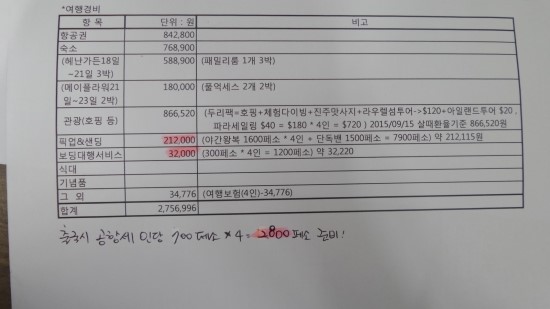 *여행경비
항 목 단위 : 원 비고
항공권 842,800
숙소 768,900
(헤난가든18일 588,900 (패밀리룸 1개 3박)
~21일 3박)
(메이플라워21 180,000 (풀억세스 2개 2박)
일~23일 2박)
관광(호핑 등) 866,520 (두리팩=호핑+체험다이빙+진주맛사지+라우렐섬투어->$120+아일랜드투어 $20 ,
파라세일링 $40 = $180 * 4인 = $720 ) 2015/09/15 살때환율기준 866,520원
픽업&샌딩 212,000 (야간왕복 1600페소 * 4인 + 단독밴 1500페소 = 7900페소) 약 212,115원
보딩대행서비스 32,000 (300페소 * 4인 = 1200페소) 약 32,220
식대
기념품
그 외 34,776 (여행보험(4인)-34,776)
합계 2,756,996
출국시 공항세 인당 700페소 * 4 = 2800페소 준비!